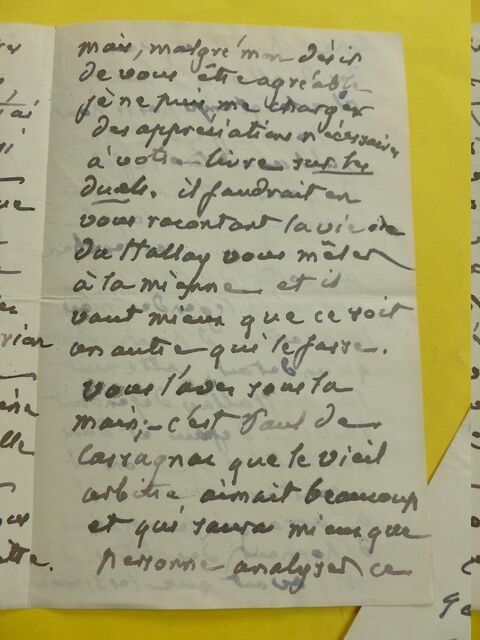 mais, malgré mon désir
de vous être agréable
je ne puis me charger
des appreciations nécessaires
à votre livre sur les
duels. il faudrait en
vous racontant la vie de
du Hallay vous mêler
à la mienne et il
vaut mieux que ce soit
un autre qui le fasse.
vous l'avez sous la
main, – c'est Paul de
Cassagnac que le vieil
arbitre aimait beaucoup
et qui saura mieux que
personne analyser ce